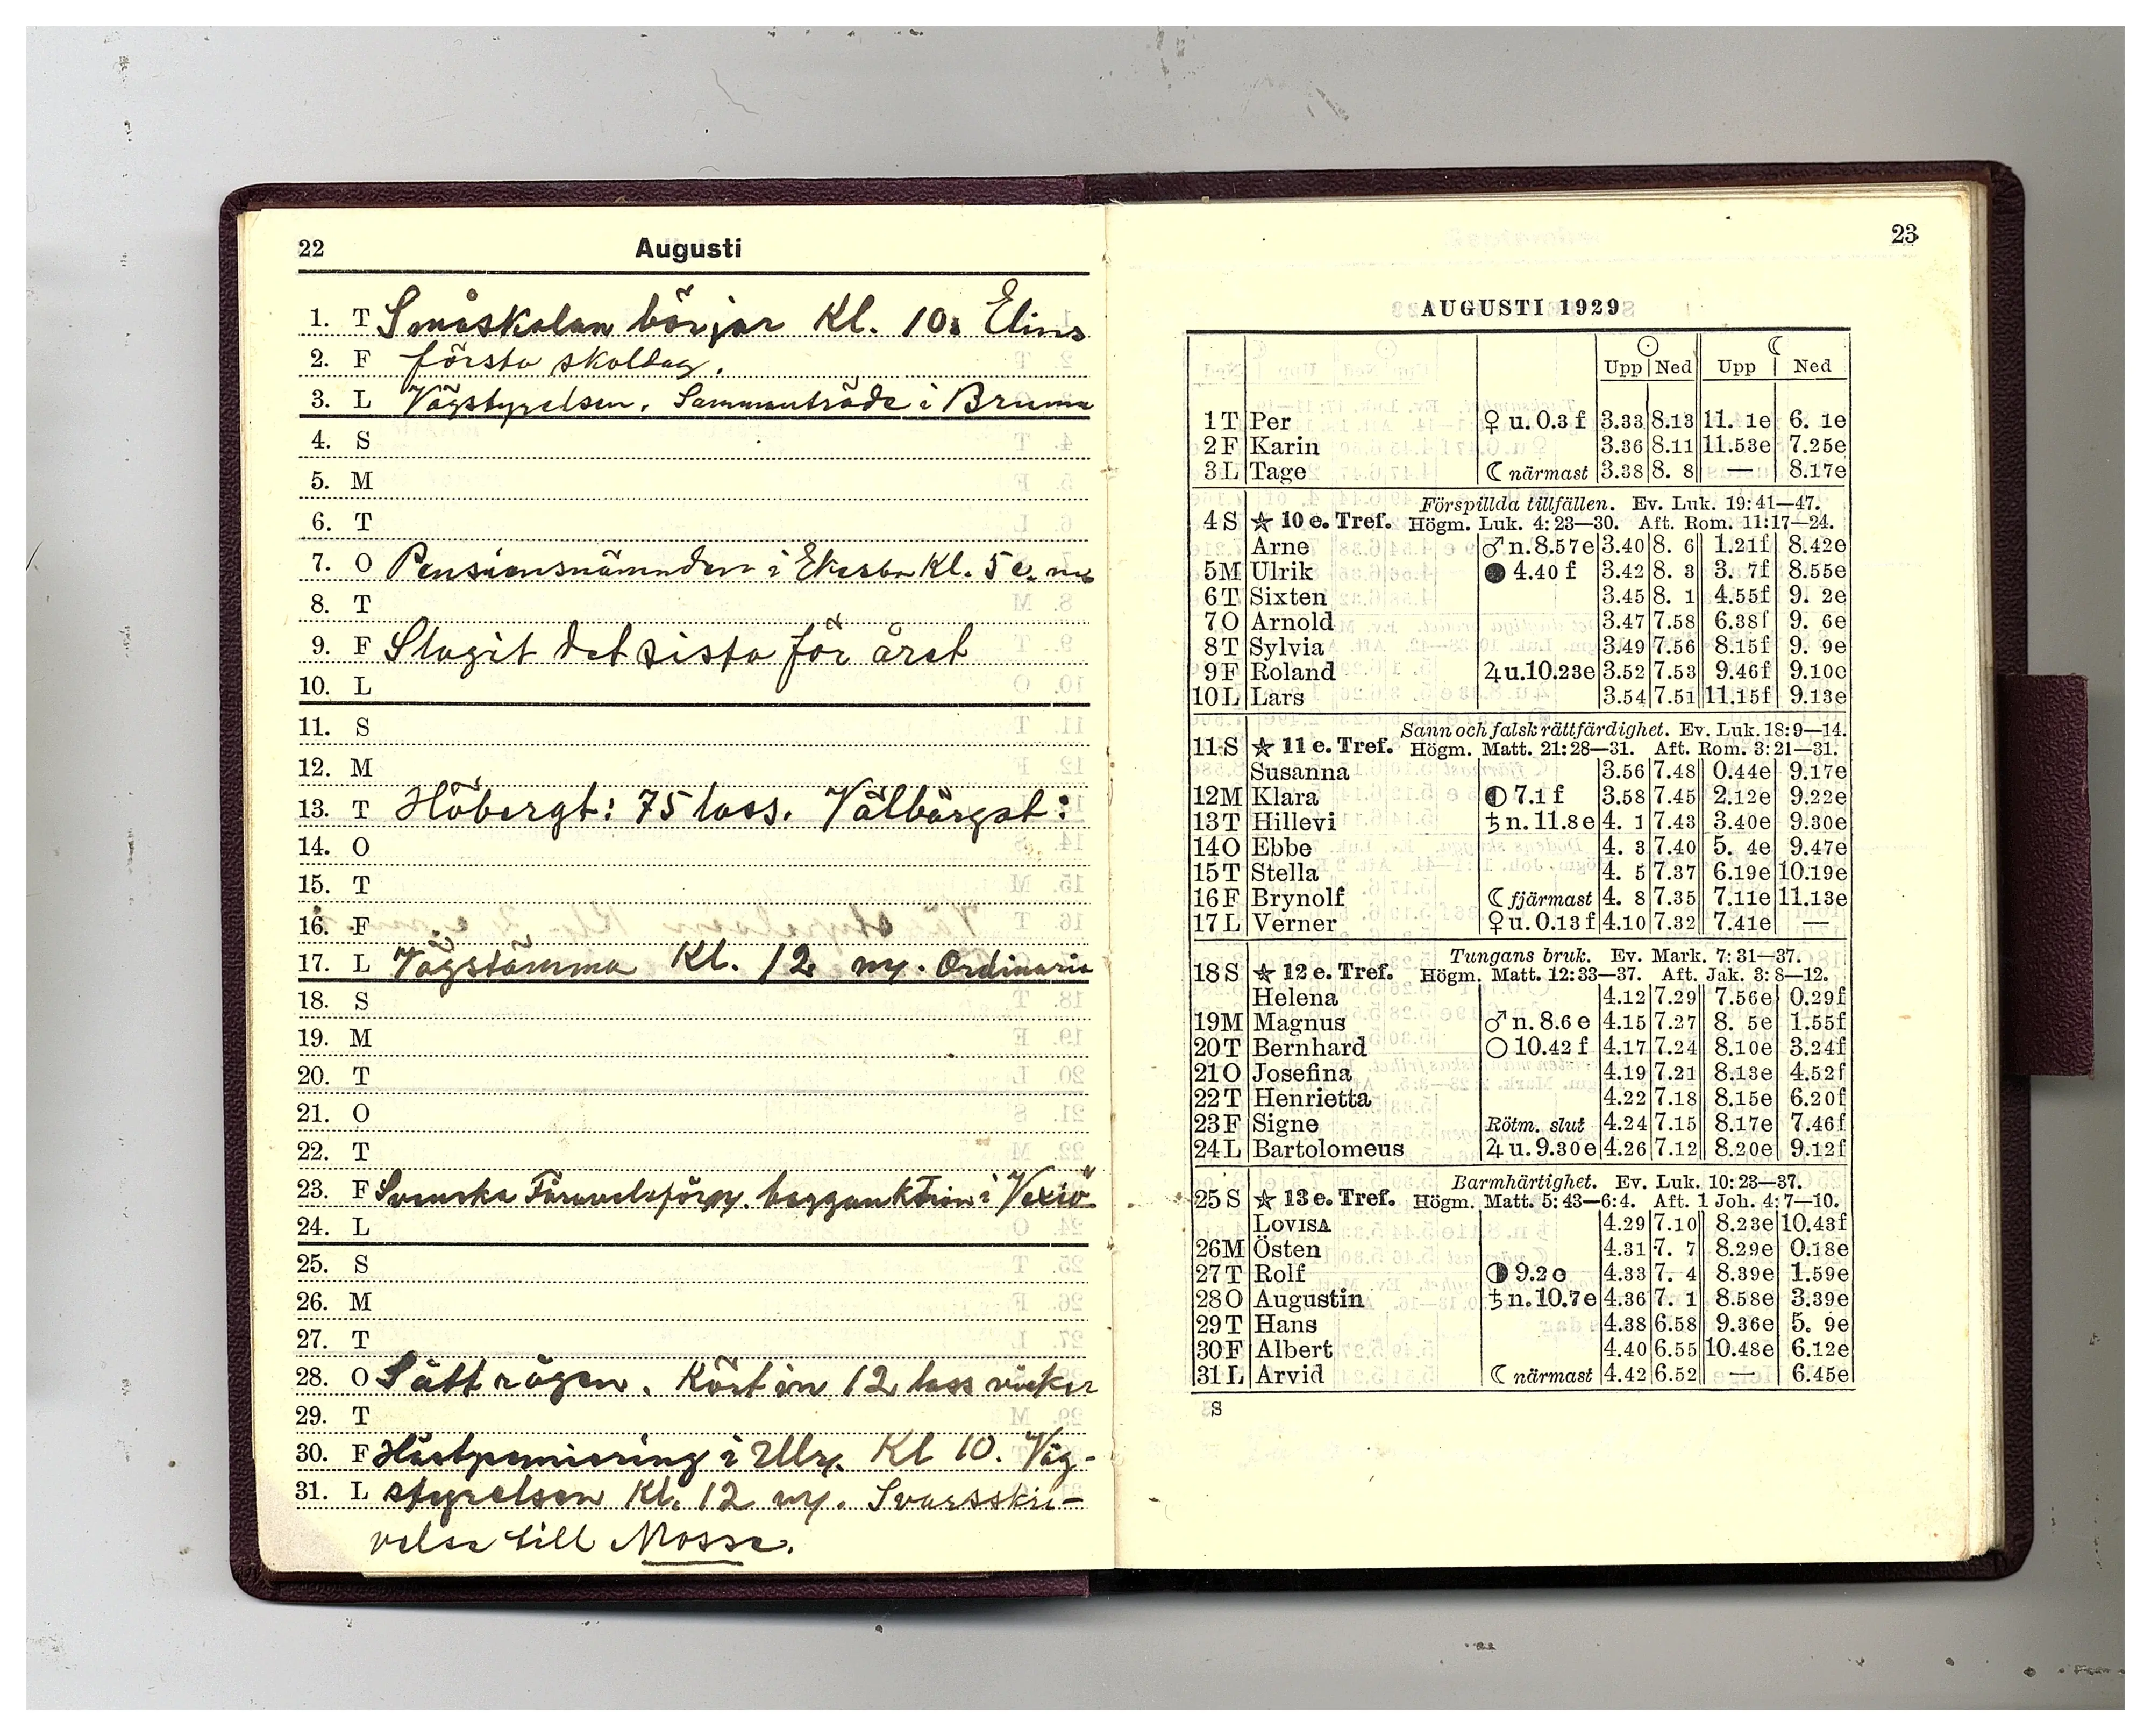 22 Augusti
1. T Småskolan börjar Kl. 10. Elins
2. F första skoldag.
3. L Vägstyrelsen. Sammanträde i Bruma
4. S
5. M
6. T
7. O Pensionsnämnden i Ekesbo Kl. 5 e. m.
8. T
9. F Slagit det sista för året
10. L
11. S
12. M
13. T Höbergt: 75 lass. Välbärgat:
14. O
15. T
16. F
17. L Vägstämma Kl. 12 Ordinarie
18. S
19. M
20. T
21. O
22. T
23. F Svenska i Vexiö
24. L
25. S
26. M
27. T
28. O Sått rågen. Kört in 12 lass vicker
29. T
30. F Hästpremiering i Kl 10. Väg-
31. L styrelsen Kl. 12 Svarsskri-
velse till Mosse.
23
AUGUSTI 1929
☉ ☾
Upp Ned Upp Ned
1 T Per ♀ u. 0.3 f 3.33 8.13 11. 1e 6. 1e
2 F Karin 3.36 8.11 11.53e 7.25e
3 L Tage ☾ närmast 3.38 8. 8 — 8.17e
Förspillda tillfällen. Ev. Luk. 19: 41—47.
4 S ★ 10 e. Tref. Högm. Luk. 4: 23—30. Aft. Rom. 11: 17—24.
Arne ♂ n. 8.57 e 3.40 8. 6 1.21f 8.42e
5 M Ulrik ● 4.40 f 3.42 8. 3 3. 7f 8.55e
6 T Sixten 3.45 8. 1 4.55f 9. 2e
7 O Arnold 3.47 7.58 6.38f 9. 6e
8 T Sylvia 3.49 7.56 8.15f 9. 9e
9 F Roland ♃ u. 10.23e 3.52 7.53 9.46f 9.10e
10 L Lars 3.54 7.51 11.15f 9.13e
Sann och falsk rättfärdighet. Ev. Luk. 18: 9—14.
11 S ★ 11 e. Tref. Högm. Matt. 21: 28—31. Aft. Rom. 3: 21—31.
Susanna 3.56 7.48 0.44e 9.17e
12 M Klara ◐ 7.1 f 3.58 7.45 2.12e 9.22e
13 T Hillevi ♄ n. 11.8 e 4. 1 7.43 3.40e 9.30e
14 O Ebbe 4. 3 7.40 5. 4e 9.47e
15 T Stella 4. 5 7.37 6.19e 10.19e
16 F Brynolf ☾ fjärmast 4. 8 7.35 7.11e 11.13e
17 L Verner ♀ u. 0.13 f 4.10 7.32 7.41e —
Tungans bruk. Ev. Mark. 7: 31—37.
18 S ★ 12 e. Tref. Högm. Matt. 12: 33—37. Aft. Jak. 3: 8—12.
Helena 4.12 7.29 7.56e 0.29f
19 M Magnus ♂ n. 8.6 e 4.15 7.27 8. 5e 1.55f
20 T Bernhard ○ 10.42 f 4.17 7.24 8.10e 3.24f
21 O Josefina 4.19 7.21 8.13e 4.52f
22 T Henrietta 4.22 7.18 8.15e 6.20f
23 F Signe Rötm. slut 4.24 7.15 8.17e 7.46f
24 L Bartolomeus ♃ u. 9.30 e 4.26 7.12 8.20e 9.12f
Barmhärtighet. Ev. Luk. 10: 23—37.
25 S ★ 13 e. Tref. Högm. Matt. 5: 43—6: 4. Aft. 1 Joh. 4: 7—10.
LOVISA 4.29 7.10 8.23e 10.43f
26 M Östen 4.31 7. 7 8.29e 0.18e
27 T Rolf ◑ 9.2 e 4.33 7. 4 8.39e 1.59e
28 O Augustin ♄ n. 10.7 e 4.36 7. 1 8.58e 3.39e
29 T Hans 4.38 6.58 9.36e 5. 9e
30 F Albert 4.40 6.55 10.48e 6.12e
31 L Arvid ☾ närmast 4.42 6.52 — 6.45e
S